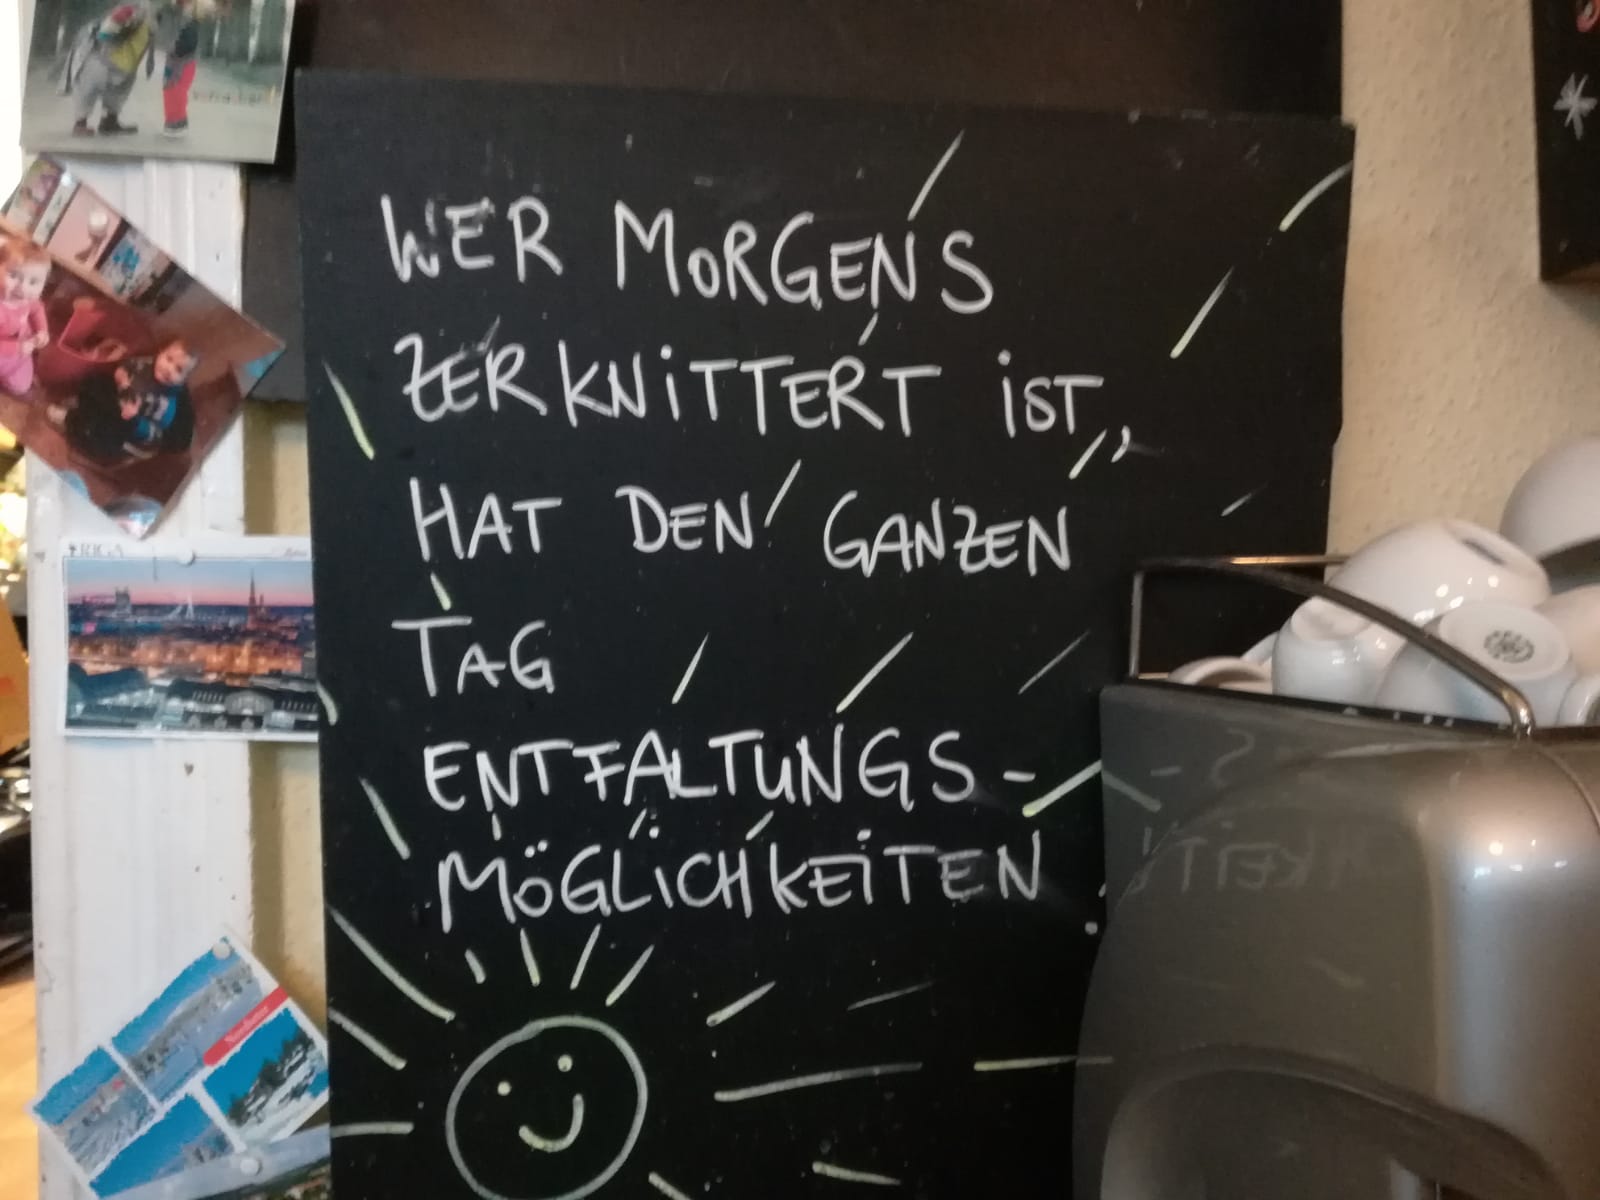 WER MORGENS
ZERKNITTERT IST,
HAT DEN GANZEN
TAG
ENTFALTUNGS-
MÖGLICHKEITEN.
RIGA